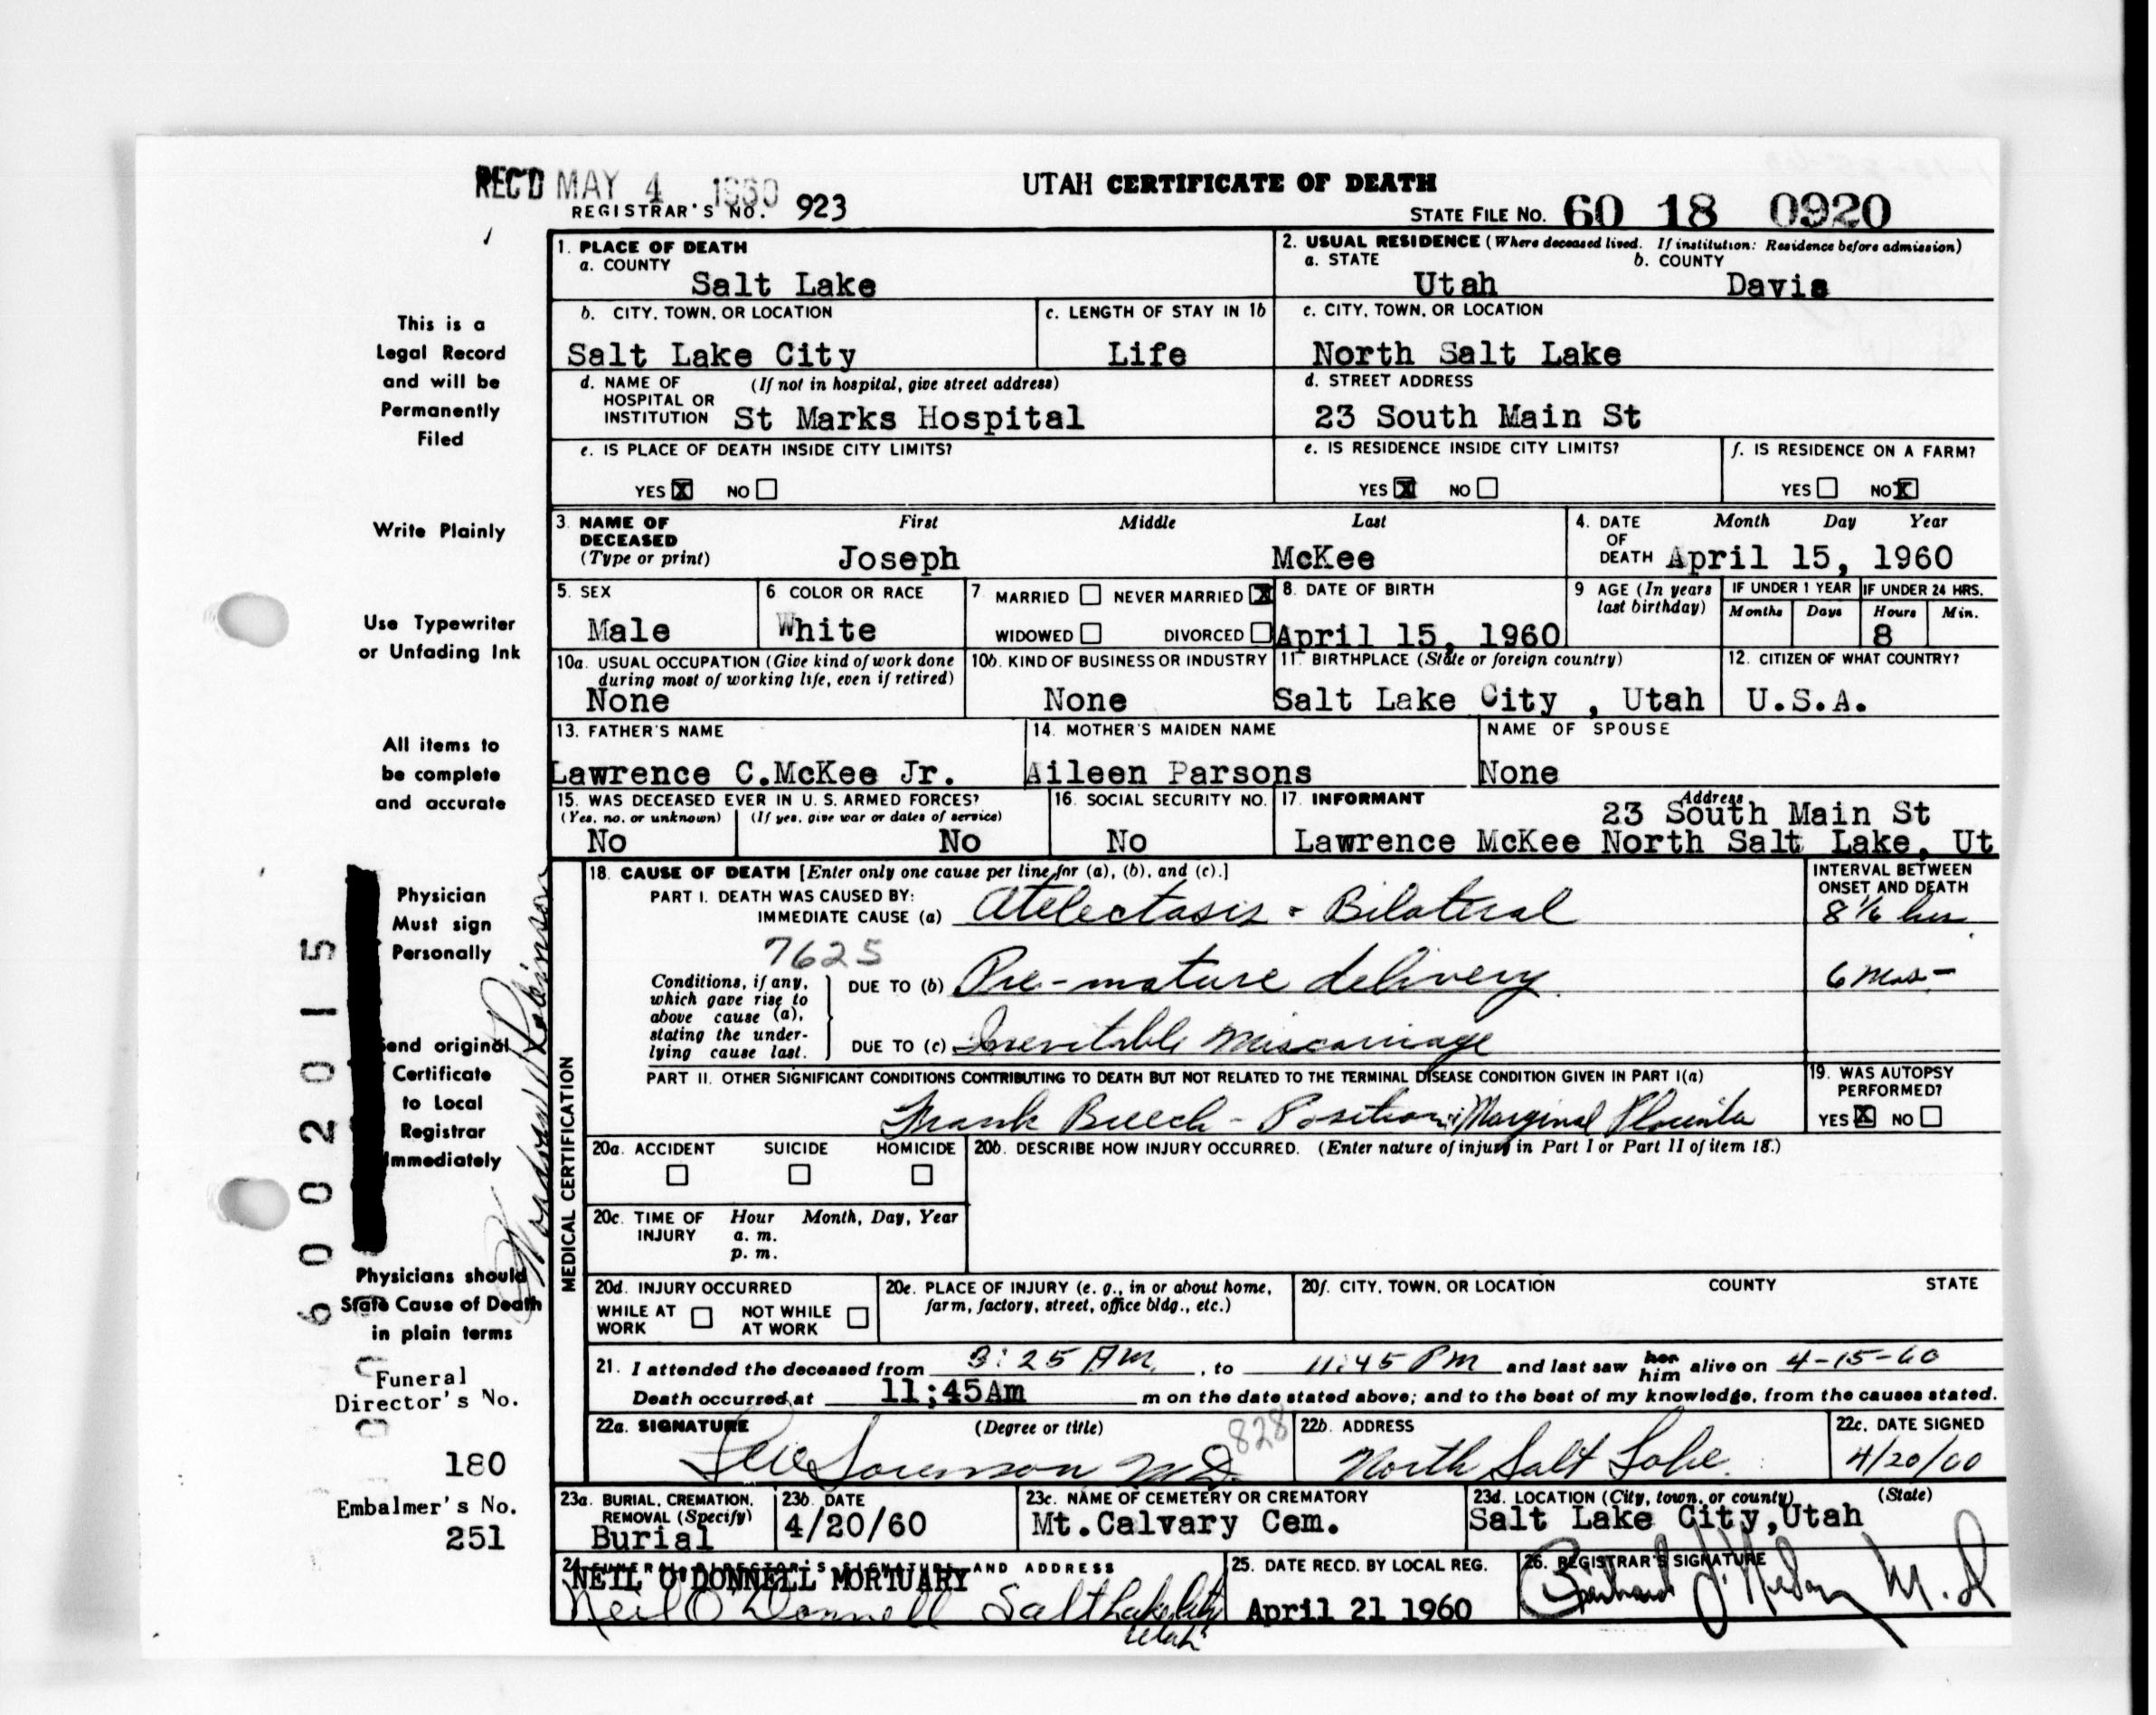 REC'D MAY 4 1960
UTAH CERTIFICATE OF DEATH
REGISTRAR'S NO. 923
STATE FILE NO. 60 18 0920
1. PLACE OF DEATH
a. COUNTY
Salt Lake
2. USUAL RESIDENCE (Where deceased lived. If institution: Residence before admission)
a. STATE b. COUNTY
Utah Davis
b. CITY, TOWN, OR LOCATION
Salt Lake City
c. LENGTH OF STAY IN 1b
Life
c. CITY, TOWN, OR LOCATION
North Salt Lake
d. NAME OF HOSPITAL OR INSTITUTION (If not in hospital, give street address)
St Marks Hospital
d. STREET ADDRESS
23 South Main St
e. IS PLACE OF DEATH INSIDE CITY LIMITS?
YES X NO
e. IS RESIDENCE INSIDE CITY LIMITS?
YES X NO
f. IS RESIDENCE ON A FARM?
YES NO X
3. NAME OF DECEASED (Type or print)
First Middle Last
Joseph McKee
4. DATE OF DEATH Month Day Year
April 15, 1960
5. SEX
Male
6 COLOR OR RACE
White
7 MARRIED NEVER MARRIED X
WIDOWED DIVORCED
8. DATE OF BIRTH
April 15, 1960
9 AGE (In years last birthday)
IF UNDER 1 YEAR IF UNDER 24 HRS.
Months Days Hours Min.
8
10a. USUAL OCCUPATION (Give kind of work done during most of working life, even if retired)
None
10b. KIND OF BUSINESS OR INDUSTRY
None
11. BIRTHPLACE (State or foreign country)
Salt Lake City , Utah
12. CITIZEN OF WHAT COUNTRY?
U.S.A.
13. FATHER'S NAME
Lawrence C.McKee Jr.
14. MOTHER'S MAIDEN NAME
Aileen Parsons
NAME OF SPOUSE
None
15. WAS DECEASED EVER IN U. S. ARMED FORCES?
(Yes, no, or unknown) (If yes, give war or dates of service)
No No
16. SOCIAL SECURITY NO.
No
17. INFORMANT Address
23 South Main St
Lawrence McKee North Salt Lake, Ut
18. CAUSE OF DEATH [Enter only one cause per line for (a), (b), and (c).]
INTERVAL BETWEEN ONSET AND DEATH
PART I. DEATH WAS CAUSED BY:
IMMEDIATE CAUSE (a) Atelectasis - Bilateral
8 1/6 hrs
7625
Conditions, if any, which gave rise to above cause (a), stating the underlying cause last.
DUE TO (b) Pre-mature delivery
6 mos-
DUE TO (c) Inevitable Miscarriage
PART II. OTHER SIGNIFICANT CONDITIONS CONTRIBUTING TO DEATH BUT NOT RELATED TO THE TERMINAL DISEASE CONDITION GIVEN IN PART I(a)
Frank Breech - Position; Marginal Placenta
19. WAS AUTOPSY PERFORMED?
YES X NO
20a. ACCIDENT SUICIDE HOMICIDE
20b. DESCRIBE HOW INJURY OCCURRED. (Enter nature of injury in Part I or Part II of item 18.)
20c. TIME OF INJURY Hour Month, Day, Year
a. m.
p. m.
20d. INJURY OCCURRED
WHILE AT WORK NOT WHILE AT WORK
20e. PLACE OF INJURY (e. g., in or about home, farm, factory, street, office bldg., etc.)
20f. CITY, TOWN, OR LOCATION COUNTY STATE
MEDICAL CERTIFICATION
21. I attended the deceased from 3:25 AM, to 11:45 PM and last saw her him alive on 4-15-60
Death occurred at 11;45Am m on the date stated above; and to the best of my knowledge, from the causes stated.
22a. SIGNATURE (Degree or title)
Sorenson M.D.
828
22b. ADDRESS
North Salt Lake
22c. DATE SIGNED
4/20/60
23a. BURIAL, CREMATION, REMOVAL (Specify)
Burial
23b. DATE
4/20/60
23c. NAME OF CEMETERY OR CREMATORY
Mt.Calvary Cem.
23d. LOCATION (City, town, or county) (State)
Salt Lake City,Utah
24. FUNERAL DIRECTOR'S SIGNATURE AND ADDRESS
NEIL O'DONNELL MORTUARY
Neil O'Donnell Salt Lake City
Utah
25. DATE RECD. BY LOCAL REG.
April 21 1960
26. REGISTRAR'S SIGNATURE
M.D
This is a
Legal Record
and will be
Permanently
Filed
Write Plainly
Use Typewriter
or Unfading Ink
All items to
be complete
and accurate
Physician
Must sign
Personally
Send original
Certificate
to Local
Registrar
Immediately
Physicians should
State Cause of Death
in plain terms
Funeral
Director's No.
180
Embalmer's No.
251
6002015